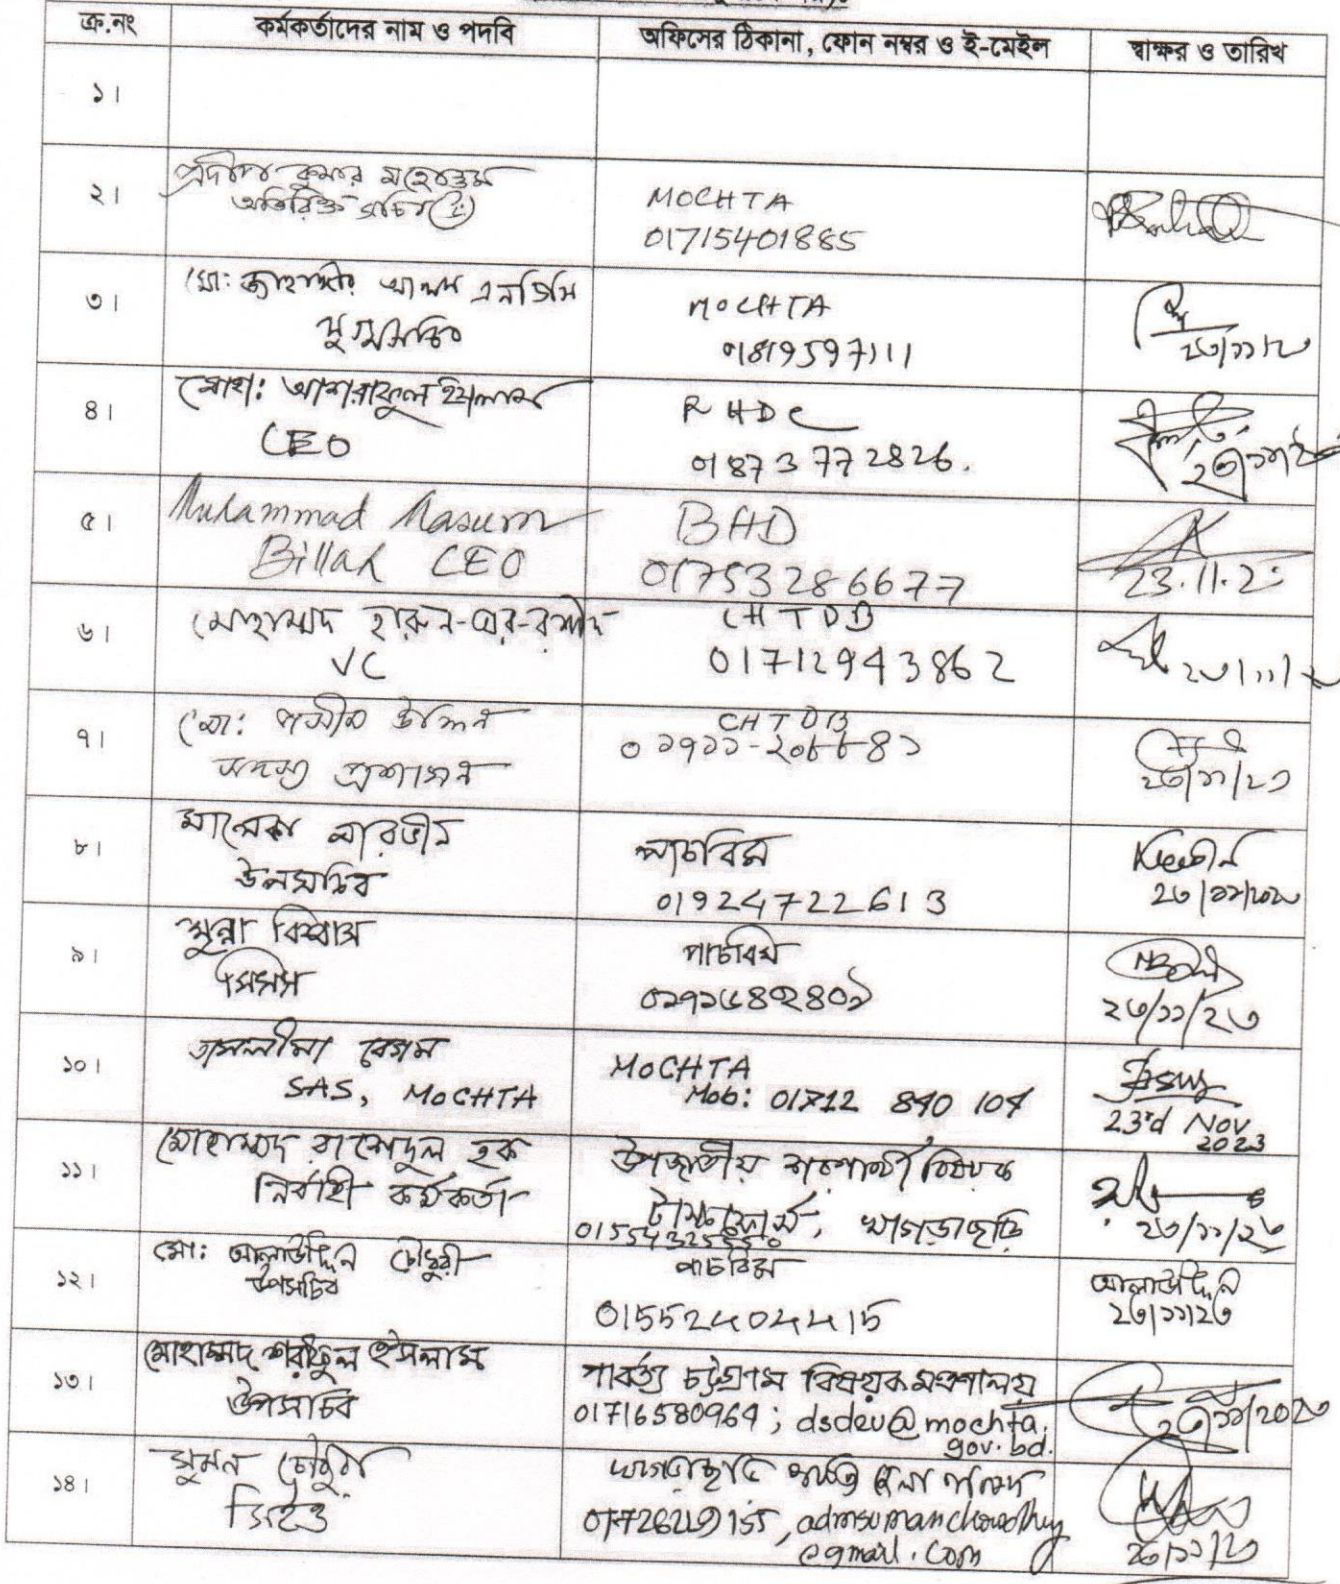 ক্র.নং কর্মকর্তাদের নাম ও পদবি অফিসের ঠিকানা, ফোন নম্বর ও ই-মেইল স্বাক্ষর ও তারিখ
১।
২। প্রদীপ কুমার মহোত্তম
অতিরিক্ত সচিব
MOCHTA
01715401885
৩। মো: জাহাঙ্গীর আলম এনডিসি
যুগ্মসচিব
MOCHTA
01819597111
২৩/১১/২৩
৪। মোহা: আশরাফুল ইসলাম
CEO
RHDC
01873772826.
৫। Muhammad Masum
Billah CEO
BHD
01753286677
23.11.2
৬। মোহাম্মদ হারুন-অর-রশীদ
VC
CHTDB
01712943862
২৩/১১/২
৭। মো: উদ্দিন
সদস্য প্রশাসন
CHTDB
২৩/১১/২৩
৮। মালেকা পারভীন
উপসচিব
পাচবিম
01924722613
২৩/১১/২০২৩
৯। মুন্না বিশ্বাস
পাচবিম
২৩/১১/২৩
১০। তাসলীমা বেগম
SAS, MOCHTA
MOCHTA
Mob: 01712 840 104
23rd Nov
2023
১১। মোহাম্মদ রাশেদুল হক
নির্বাহী কর্মকর্তা
উপজাতীয় শরণার্থী বিষয়ক
টাস্কফোর্স, খাগড়াছড়ি
২৩/১১/২৩
১২। মো: আলাউদ্দিন চৌধুরী
উপসচিব
পাচবিম
01552404415
আলাউদ্দিন
২৩/১১/২৩
১৩। মোহাম্মদ শরীফুল ইসলাম
উপসচিব
পার্বত্য চট্টগ্রাম বিষয়ক মন্ত্রণালয়
01716580964; dsdev@mochta.
gov.bd.
২৩/১১/২০২৩
১৪। সুমন চৌধুরী
সিইও
খাগড়াছড়ি পার্বত্য জেলা পরিষদ
admsumanchowdhury
@gmail.com
২৩/১১/২৩